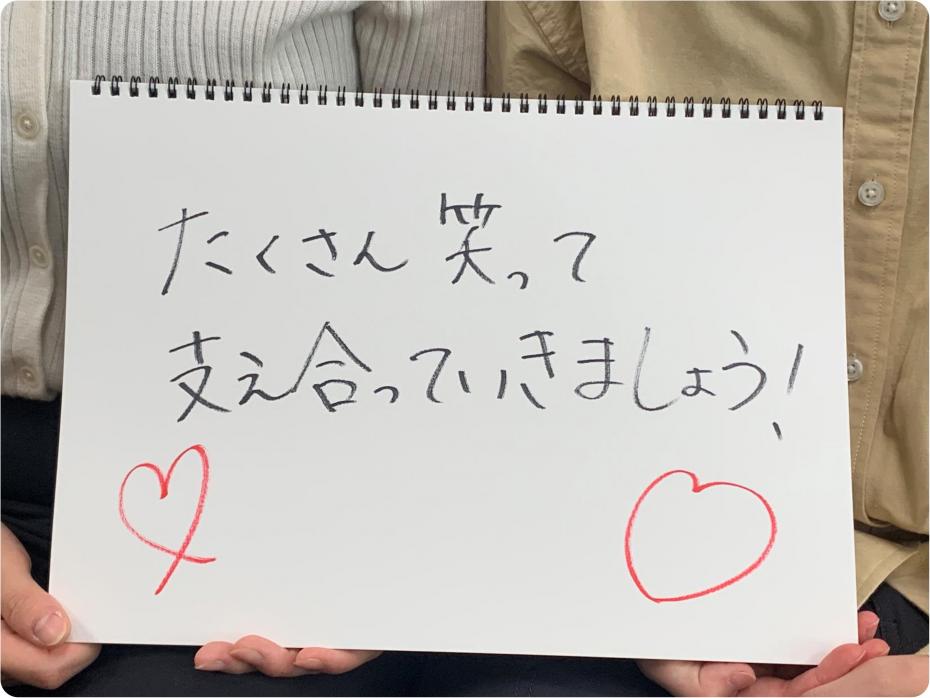 たくさん笑って
支え合っていきましょう!